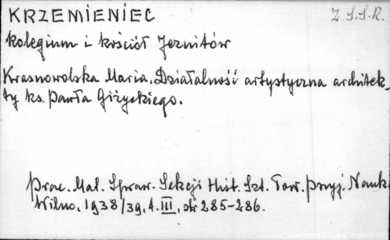 KRZEMIENIEC
Z.S.S.R.
kolegium i kościół Jezuitów
Krasnowolska Maria. Działalność artystyczna architek-
ty ks. Pawła Giżyckiego.
Prac. Mat. Spraw. Sekcji Hist. Szt. Tow. Przyj. Nauk.
Wilno, 1938/39, t. III, str 285-286.